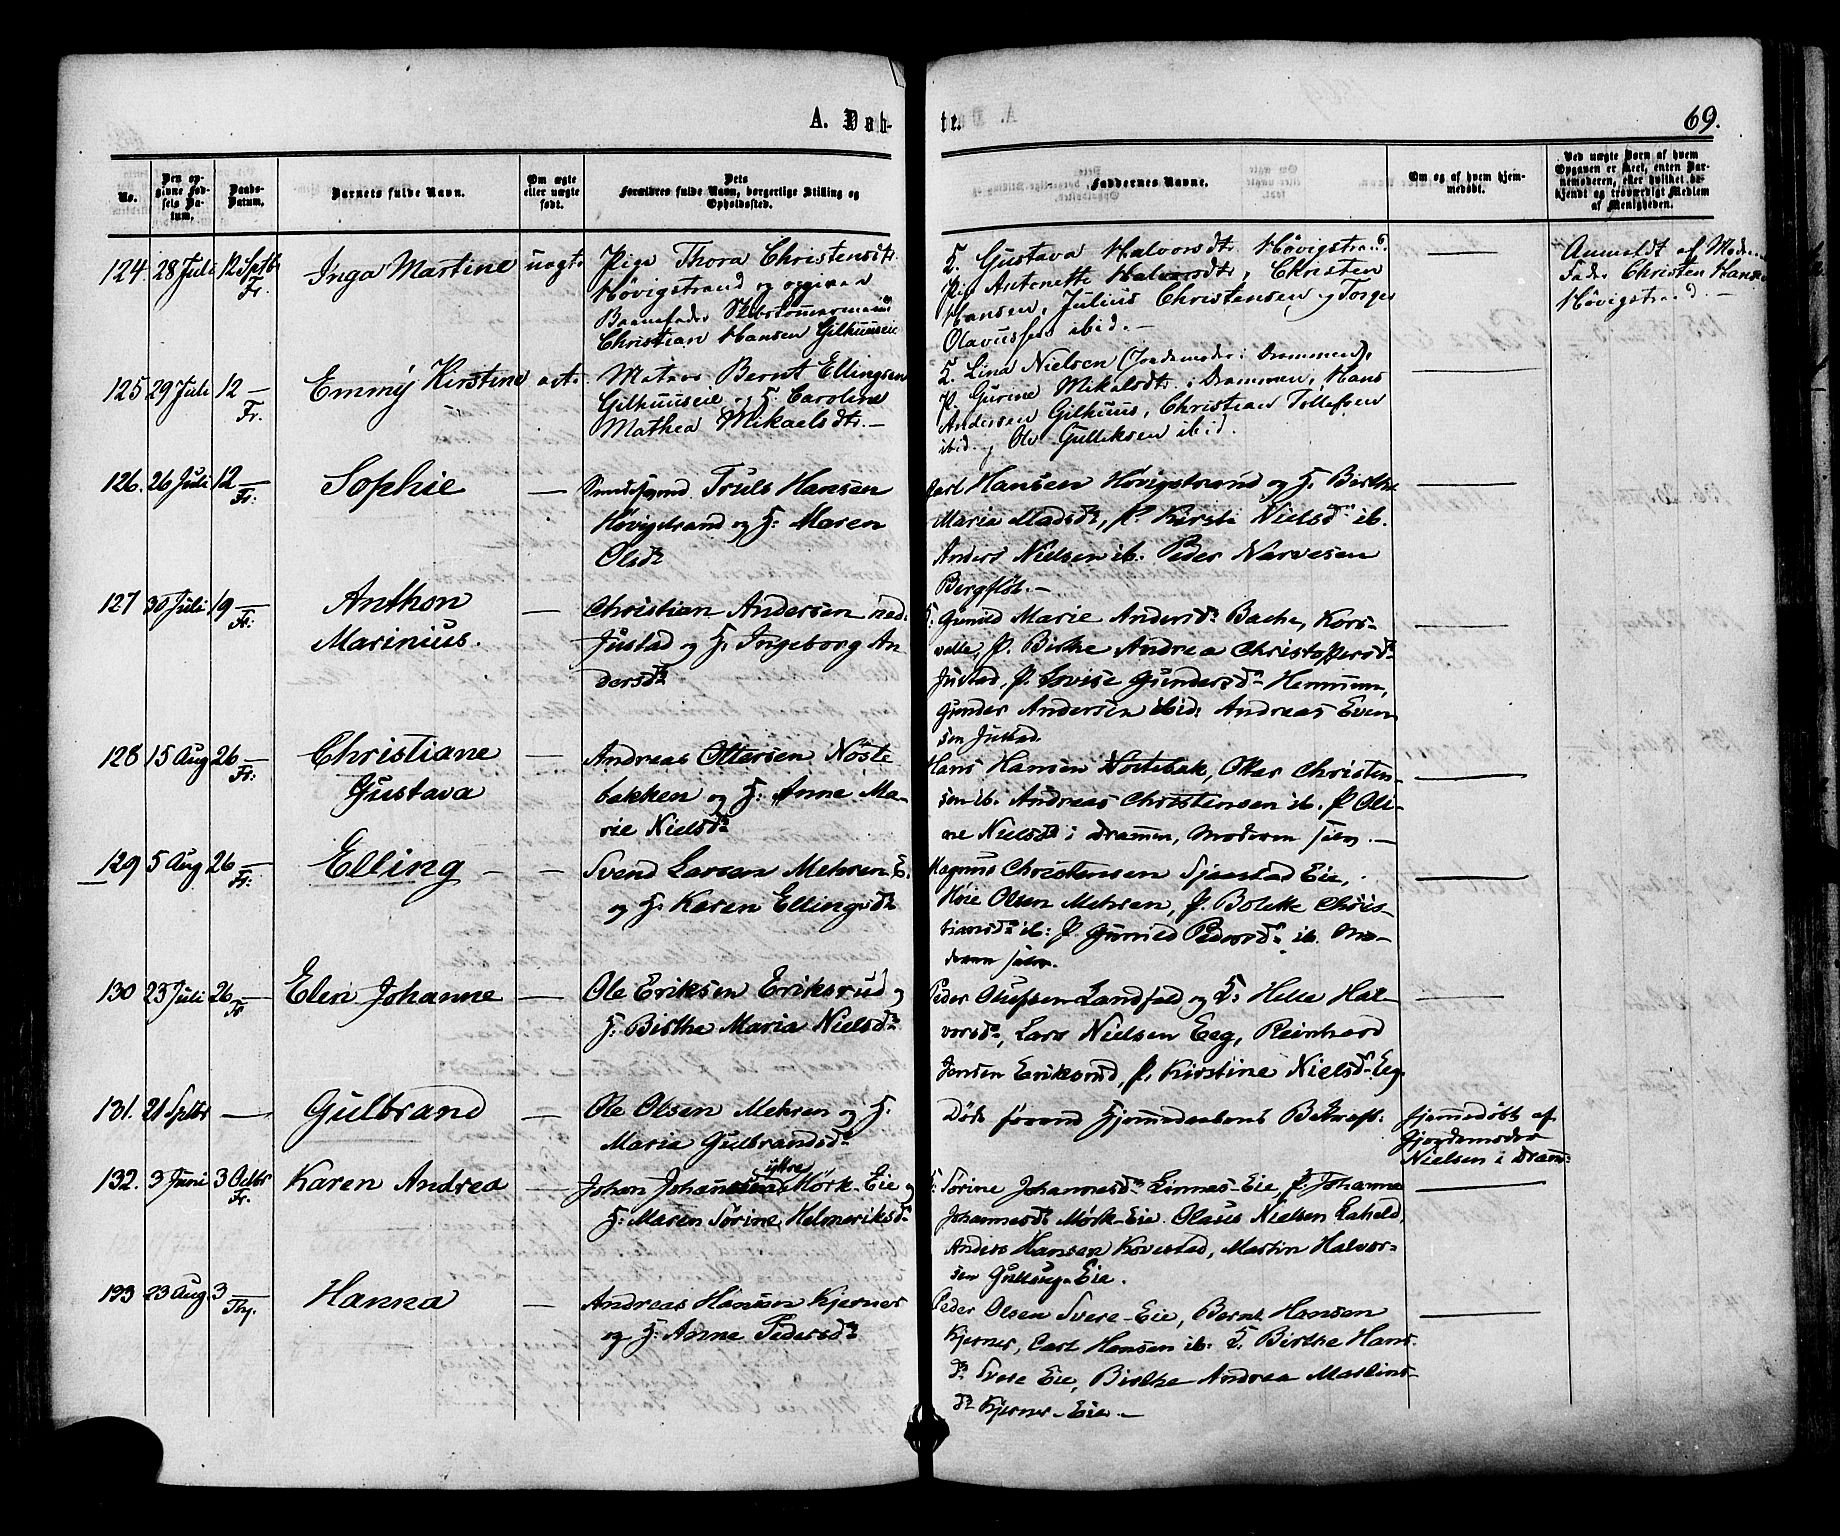 A. Døb-
te.
69.
No.
Den opgivne Fødsels Datum.
Daabs-Datum.
Barnets fulde Navn.
Om ægte eller uægte født.
Dets Forældres fulde Navn, borgerlige Stilling og Opholdssted.
Faddernes Navne.
Om og af hvem hjemmedøbt.
Ved uægte Børn af hvem Opgaven er skeet, enten Barnemoderen, eller hvilket bekjendt og troværdigt Medlem af Menigheden.
124. 28 Juli 12 Sptb. Fr. Inga Martine uægte
Pige Thora Christensdtr.
Høvigstrand og opgiven
Barnefader
Christian Hansen Gilhuuseie
F. Gustava Halvorsdtr. Høvigstrand
Pig. Antonette Halvorsdtr, Christen
Hansen, Julius Christensen og Torger
Olavussen ibid. –
Anmeldt af Moderens
Fader Christen Hansen
Høvigstrand. –
125 29 Juli 12 – Fr. Emmy Kirstine ægte
Matros Bernt Ellingsen
Gilhuuseie og H. Caroline
Mathea Mikaelsdtr. –
F. Lina Nielsen (Jordemoder i Drammen),
P. Gurine Mikalsdtr. i Drammen, Hans
Andersen Gilhuus, Christian Tollefsen
ibid. og Ole Gulliksen ibid.
126. 26 Juli 12 – Fr: Sophie –
Truls Hansen
Høvigstrand og H: Maren
Olsdtr
Carl Hansen Høvigstrand og H. Birthe
Maria Madsdtr, P. Kirsti Nielsdtr ib.
Anders Nielsen ib. Peder Narvesen
Bergfløt. –
127 30 Juli 19 – Fr: Anthon
Marinius. –
Christian Andersen ned.
Justad og H. Ingeborg An
dersdtr
F. Gunild Marie Andersdtr Bache, Kors-
volle, P. Birthe Andrea Christoffersdtr
Justad, P. Lovise Gundersdtr Hennum,
Gunder Andersen ibid: Andreas Even
sen Justad.
128 15 Aug 26 – Fr: Christiane
Gustava –
Andreas Ottersen Nøste
bakken og H: Anne Ma-
rie Nielsdtr
Hans Hansen Nøstebak, Otter Christen-
sen ib. Andreas Christensen ib. P. Oli-
ne Nielsdtr i Drammen, Moderen selv. –
129 5 Aug 26 – Fr: Elling –
Svend Larsen Mehren E.
og H. Karen Ellingsdtr
Magnus Christensen Sjaastad Eie,
Olsen Mehren, P. Bolette Chris-
tiansdtr ib: P. Gunild Pedersdtr ib. Mo-
deren selv.
130 23 Juli 26 – Fr Elen Johanne –
Ole Eriksen Eriksrud og
H. Birthe Maria Nielsdtr
Peder Olufsen Landfald og H: Helle Hal-
vorsdtr, Lars Nielsen Eeg, Reinhard
Jensen Eriksrud, P. Kirstine Nielsdtr Eeg.
131. 21 Sptbr – Gulbrand –
Ole Olsen Mehren og H.
Maria Gulbrandsdtr
Døde førend Hjemmedaabens Bekræft:
hjemmedøbt af
Gjordemoder
Nielsen i Dram:
132. 3 Juni 3 Octbr Fr. Karen Andrea –
ytttre
Johan Johansen Mørk-Eie og
H: Maren Sørine Helmeriksdtr
F: Sørine Johannesdtr Linnes-Eie, P. Johanne
Johannesdtr Mørk-Eie. Olaus Nielsen Laheld,
Anders Hansen Kovestad, Martin Halvor-
sen Gullaug-Eie.
133 23 Aug. 3 – Ty. Hanna –
Andreas Hansen Kjerner
og H. Anne Pedersdtr
Peder Olsen Svere-Eie, Bernt Hansen
Kjerner, Carl Hansen ib: H. Birthe Hans
dtr Svere Eie, Birthe Andrea Martins-
dtr Kjerner-Eie. –